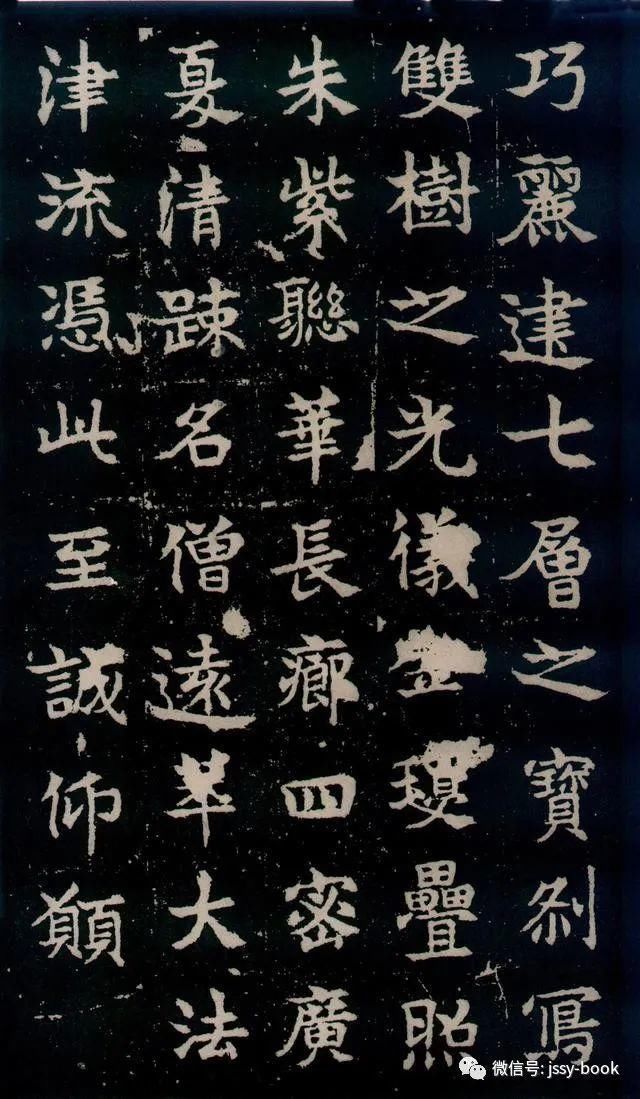 巧麗建七層之寶刹寫
雙樹之光儀金瓊疊照
朱紫聯華長廊四密廣
夏清踈名僧遠萃大法
津流憑此至誠仰願
微信号: jssy-book